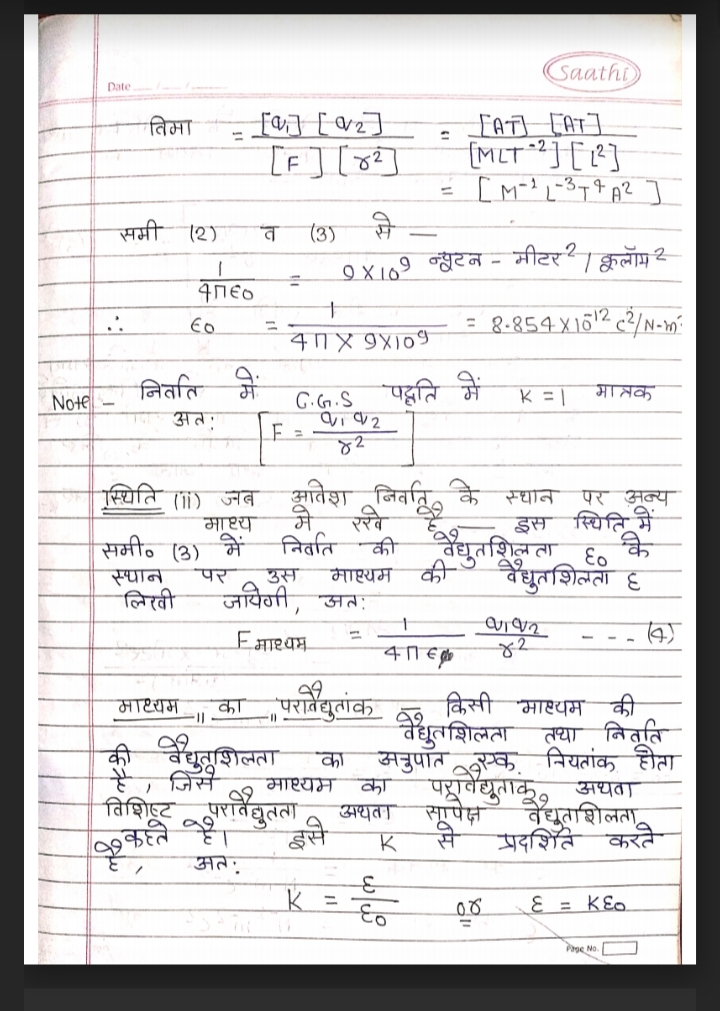 Saathi
Date
विमा = [q₁] [q₂] / [F] [r²] = [AT] [AT] / [MLT⁻²] [L²]
= [M⁻¹ L⁻³ T⁴ A²]
समी (2) व (3) से —
1 / 4πε₀ = 9×10⁹ न्यूटन - मीटर² / कूलॉम²
∴ ε₀ = 1 / 4π × 9×10⁹ = 8.854×10⁻¹² C²/N-m²
Note - निर्वात में C.G.S पद्धति में K=1 मात्रक
अतः [F = q₁q₂ / r²]
स्थिति (ii) जब आवेश निर्वात के स्थान पर अन्य
माध्य में रखे हैं — इस स्थिति में
समी० (3) में निर्वात की वैद्युतशिलता ε₀ के
स्थान पर उस माध्यम की वैद्युतशिलता ε
लिखी जायेगी, अतः
F माध्यम = 1 / 4πε q₁q₂ / r² - - - (4)
माध्यम का परावैद्युतांक — किसी माध्यम की
वैद्युतशिलता तथा निर्वात
की वैद्युतशिलता का अनुपात एक नियतांक होता
है, जिसे माध्यम का परावैद्युतांक अथवा
विशिष्ट परावैद्युतता अथवा सापेक्ष वैद्युतशिलता
कहते है। इसे K से प्रदर्शित करते
है, अतः
K = ε / ε₀ or ε = Kε₀
Page No.